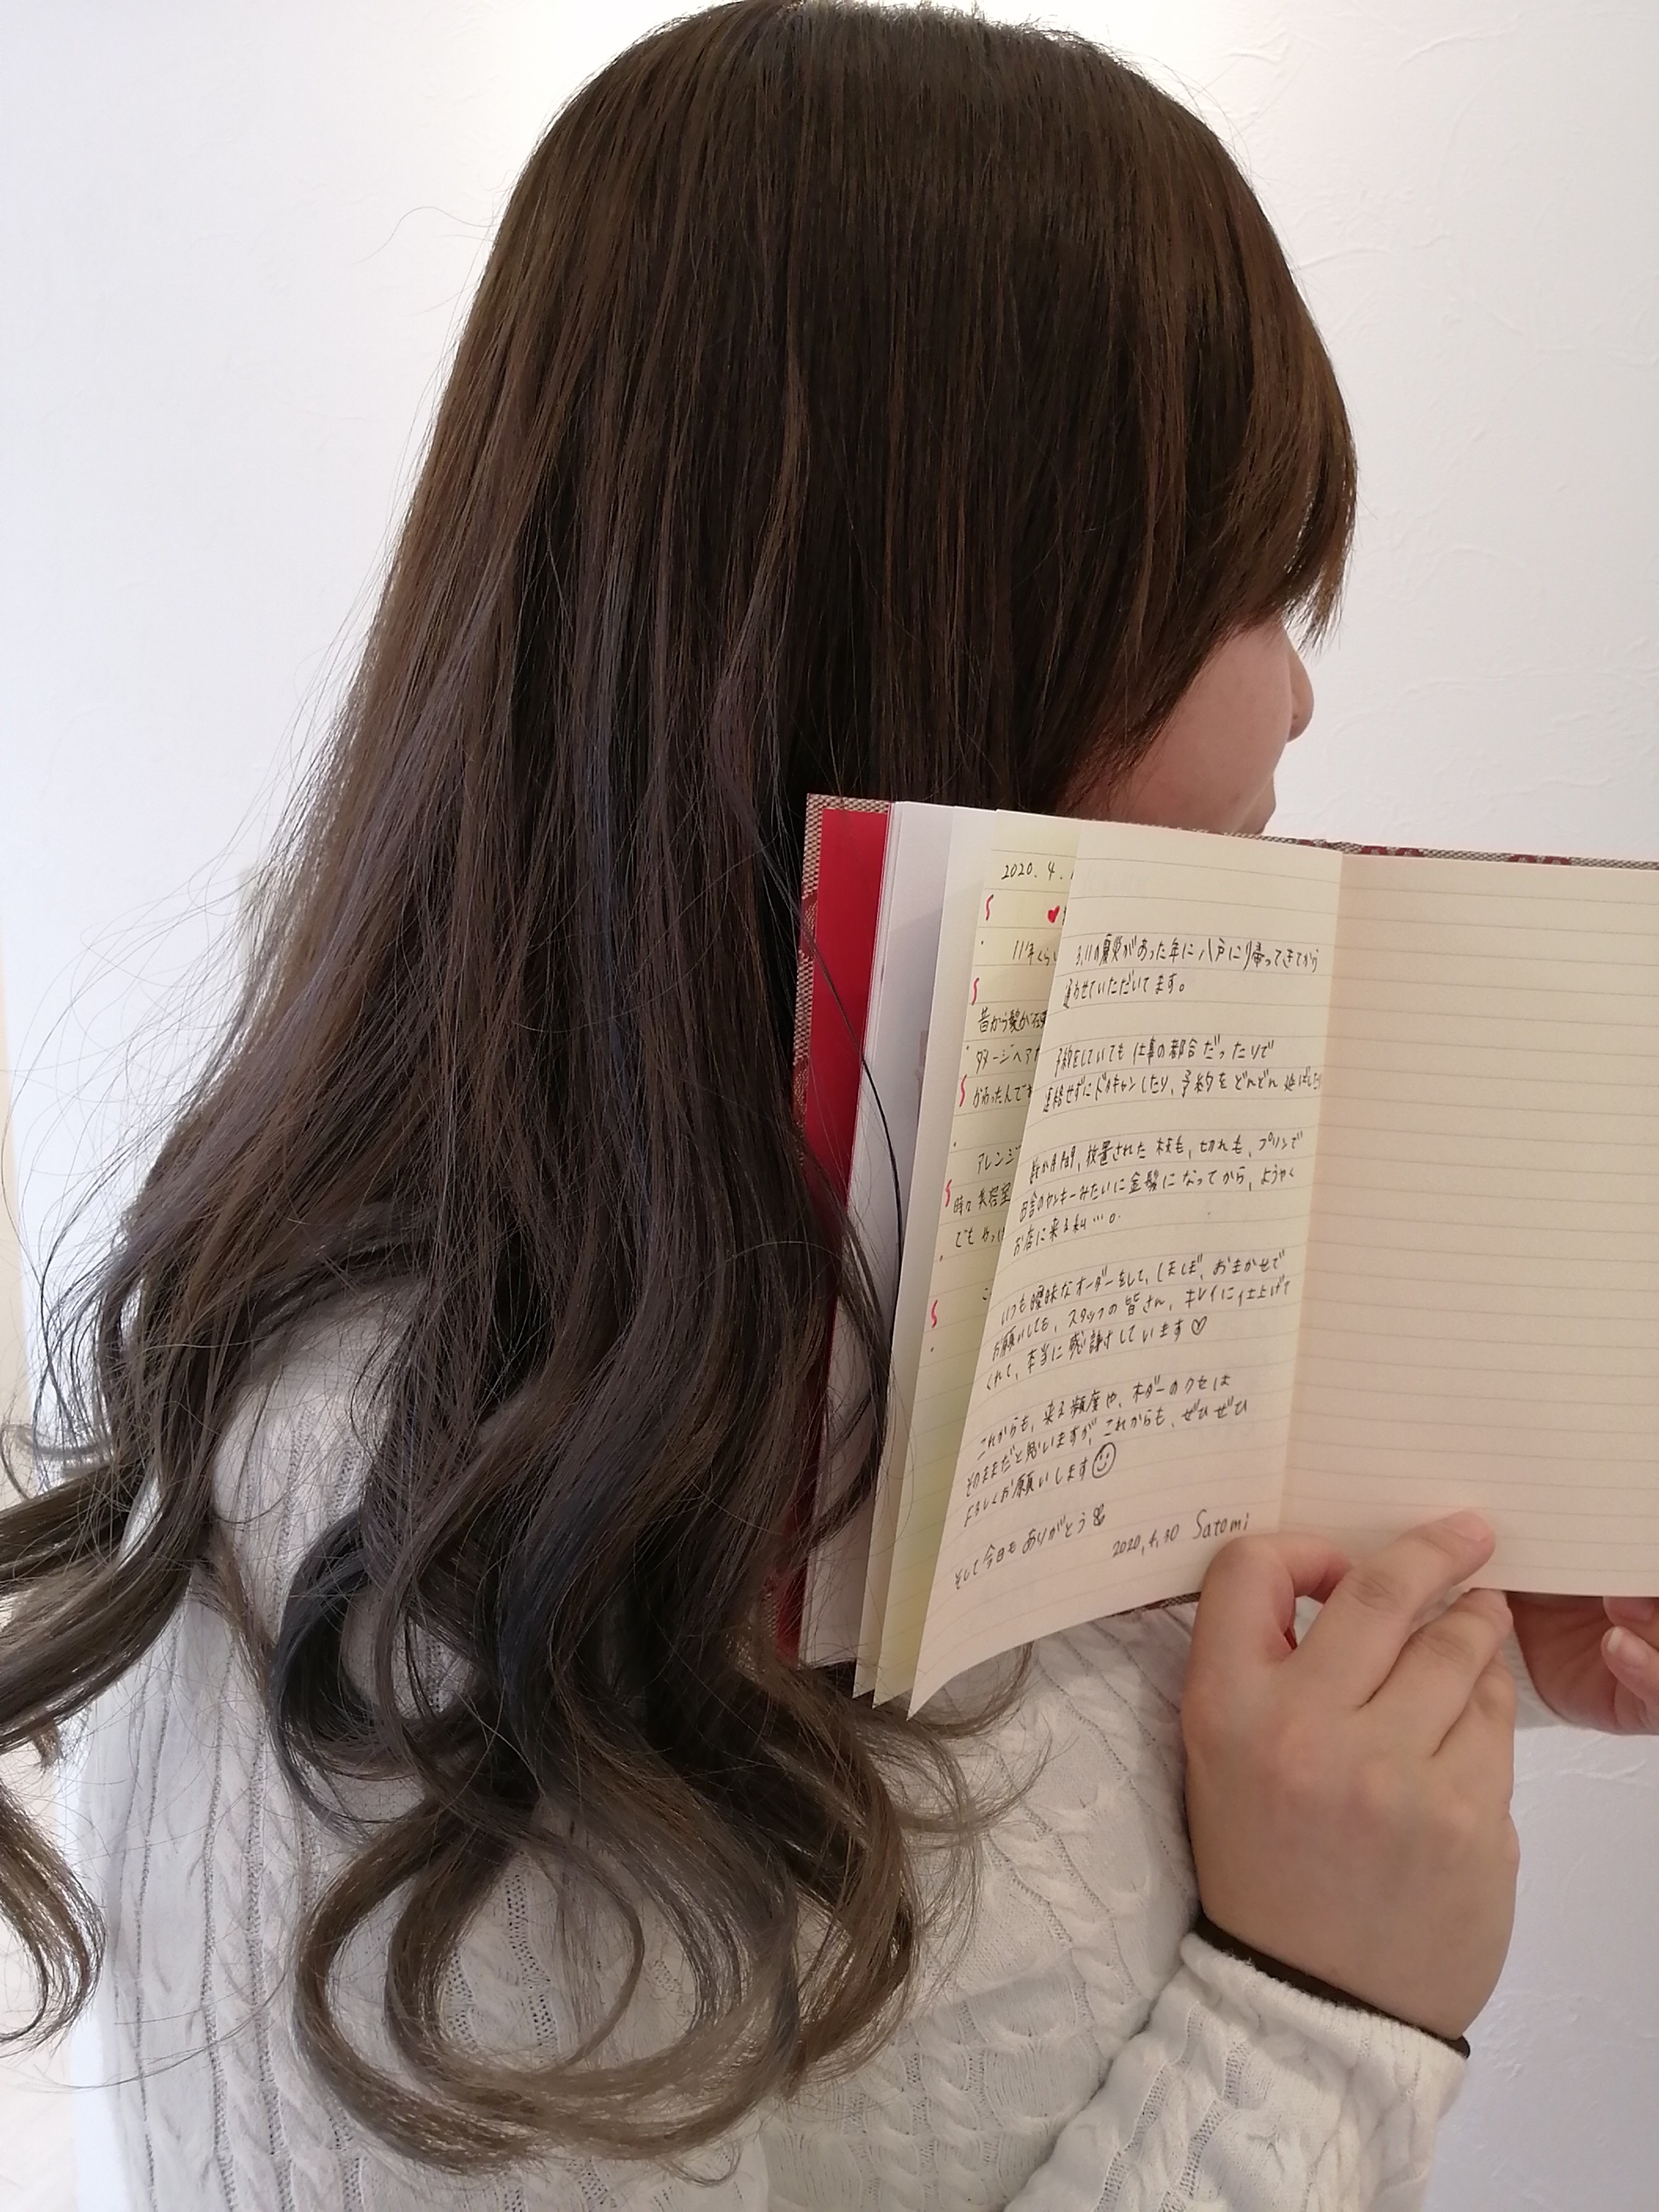 2020. 4.
11年くらい
昔から髪が
ダメージヘア
かったんでも
アレンジ
時々 美容室
でも やっぱ
こ
3.11の震災があった年に 八戸に帰ってきてから
通わせていただいてます。
予約をしていても 仕事の都合だったりで
連絡せずにドタキャンしたり、予約を どんどん 延ばしたり
数か月間、放置された 枝毛、切れ毛、プリンで
田舎のヤンキーみたいに金髪になってから、ようやく
お店に来る私…。
いつも曖昧なオーダーをして、しまいにゃ、おまかせで
お願いしても、スタッフの皆さん、キレイに仕上げて
くれて、本当に感謝しています♡
これからも、来る頻度や、オーダーのクセは
そのままだと思いますが、これからも、ぜひぜひ
よろしくお願いします☺
そして今日も ありがとう
2020.4.30 Satomi